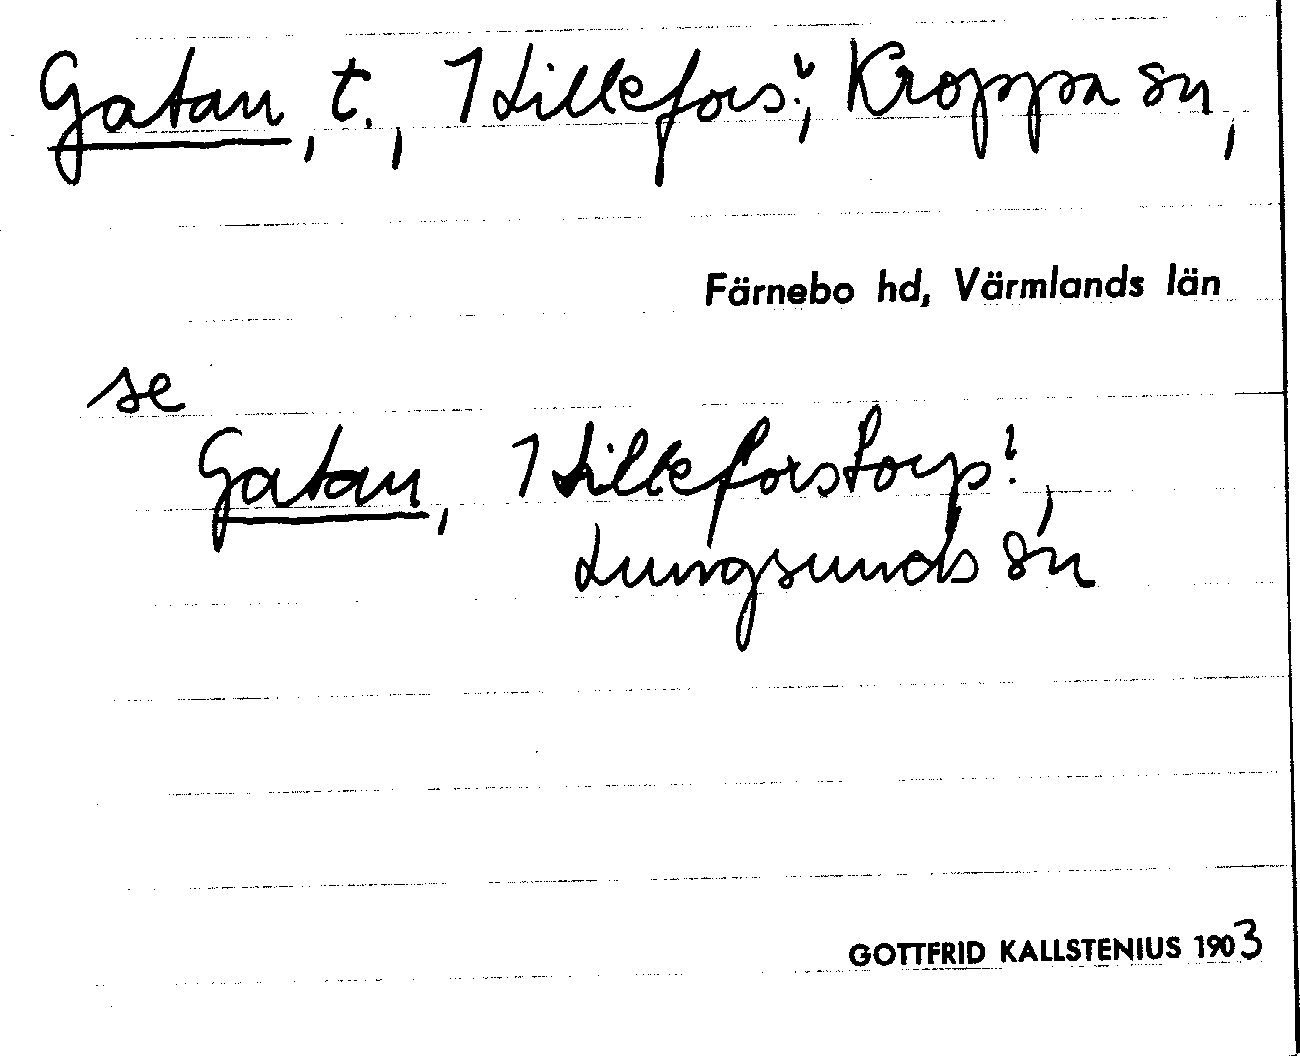 Gatan, t., 1 Lillefors!, Kroppa sn,
Färnebo hd, Värmlands län
se
Gatan, 1 Lilleforstorp!,
Lungsunds sn
GOTTFRID KALLSTENIUS 1903